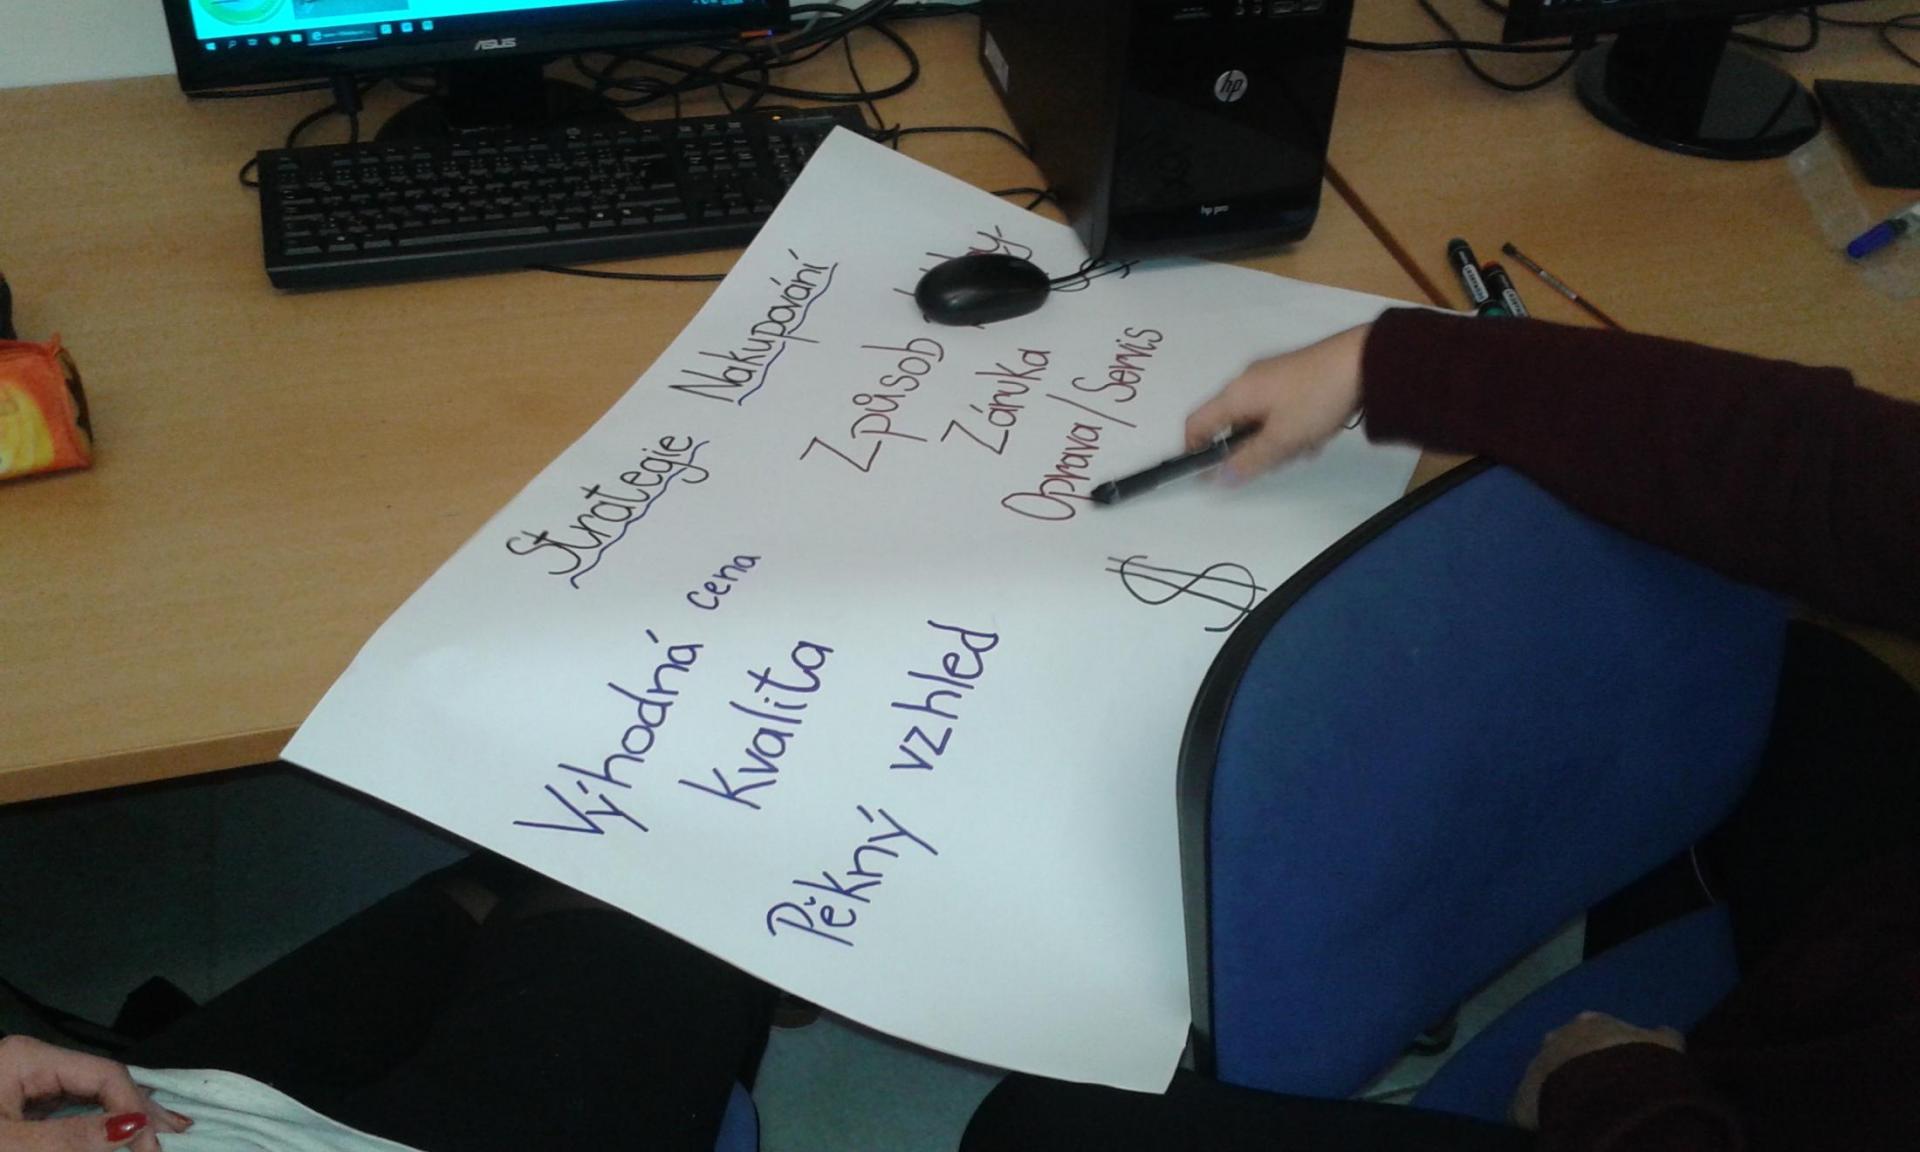 Strategie Nakupování
Výhodná cena
kvalita
Pěkný vzhled
Způsob
Záruka
Oprava/Servis
$
$
ASUS
hp
hp pro